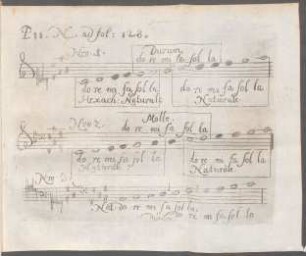 N. ad fol: 126.
No 1. Durum
do re mi fa sol la
do re mi fa sol la
do re mi fa sol la
Hexach: Naturale
Naturale
No 2. Molle
do re mi fa sol la
do re mi fa sol la
do re mi fa sol la
Naturale
Naturale
No 3.
do re mi fa sol la
re mi fa sol la